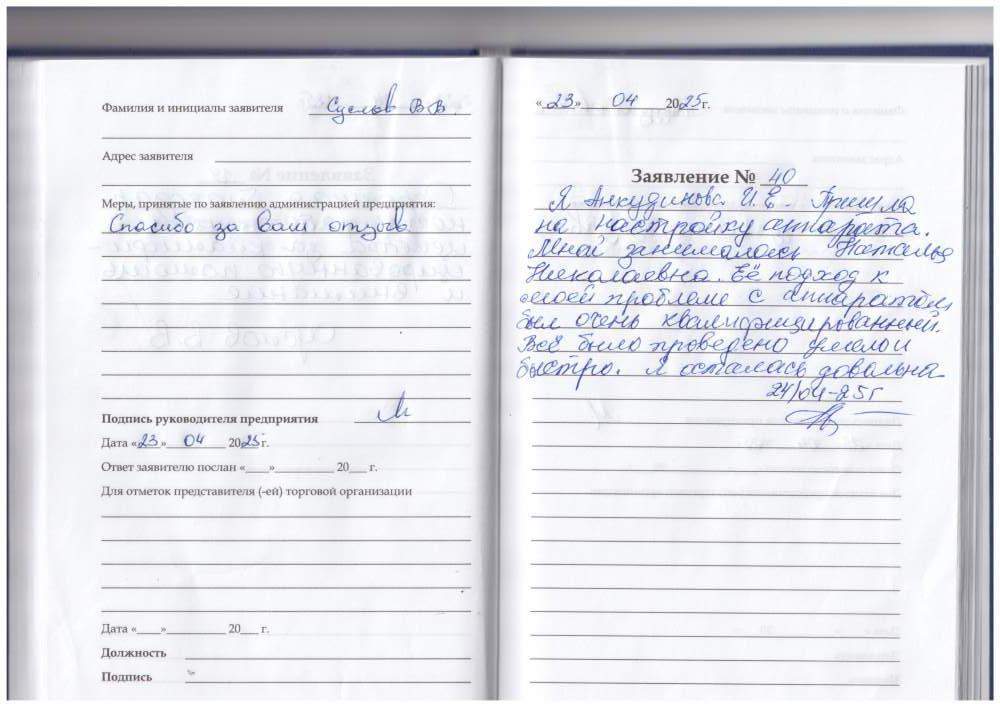 Фамилия и инициалы заявителя Суслов В В.
Адрес заявителя
Меры, принятые по заявлению администрацией предприятия:
Спасибо за Ваш отзыв.
Подпись руководителя предприятия
Дата «23» 04 2025г.
Ответ заявителю послан «___»__________ 20___ г.
Для отметок представителя (-ей) торговой организации
Дата «____»__________ 20___ г.
Должность
Подпись
«23» 04 2025г.
Заявление № 40
Я Анкудинова И.Е. Пришла
на настройку аппарата.
Мной занималась Наталья
Николаевна. Её подход к
моей проблеме с аппаратом
был очень квалифицированный.
Всё было проведено умело и
быстро. Я осталась довольна
24/04-25г